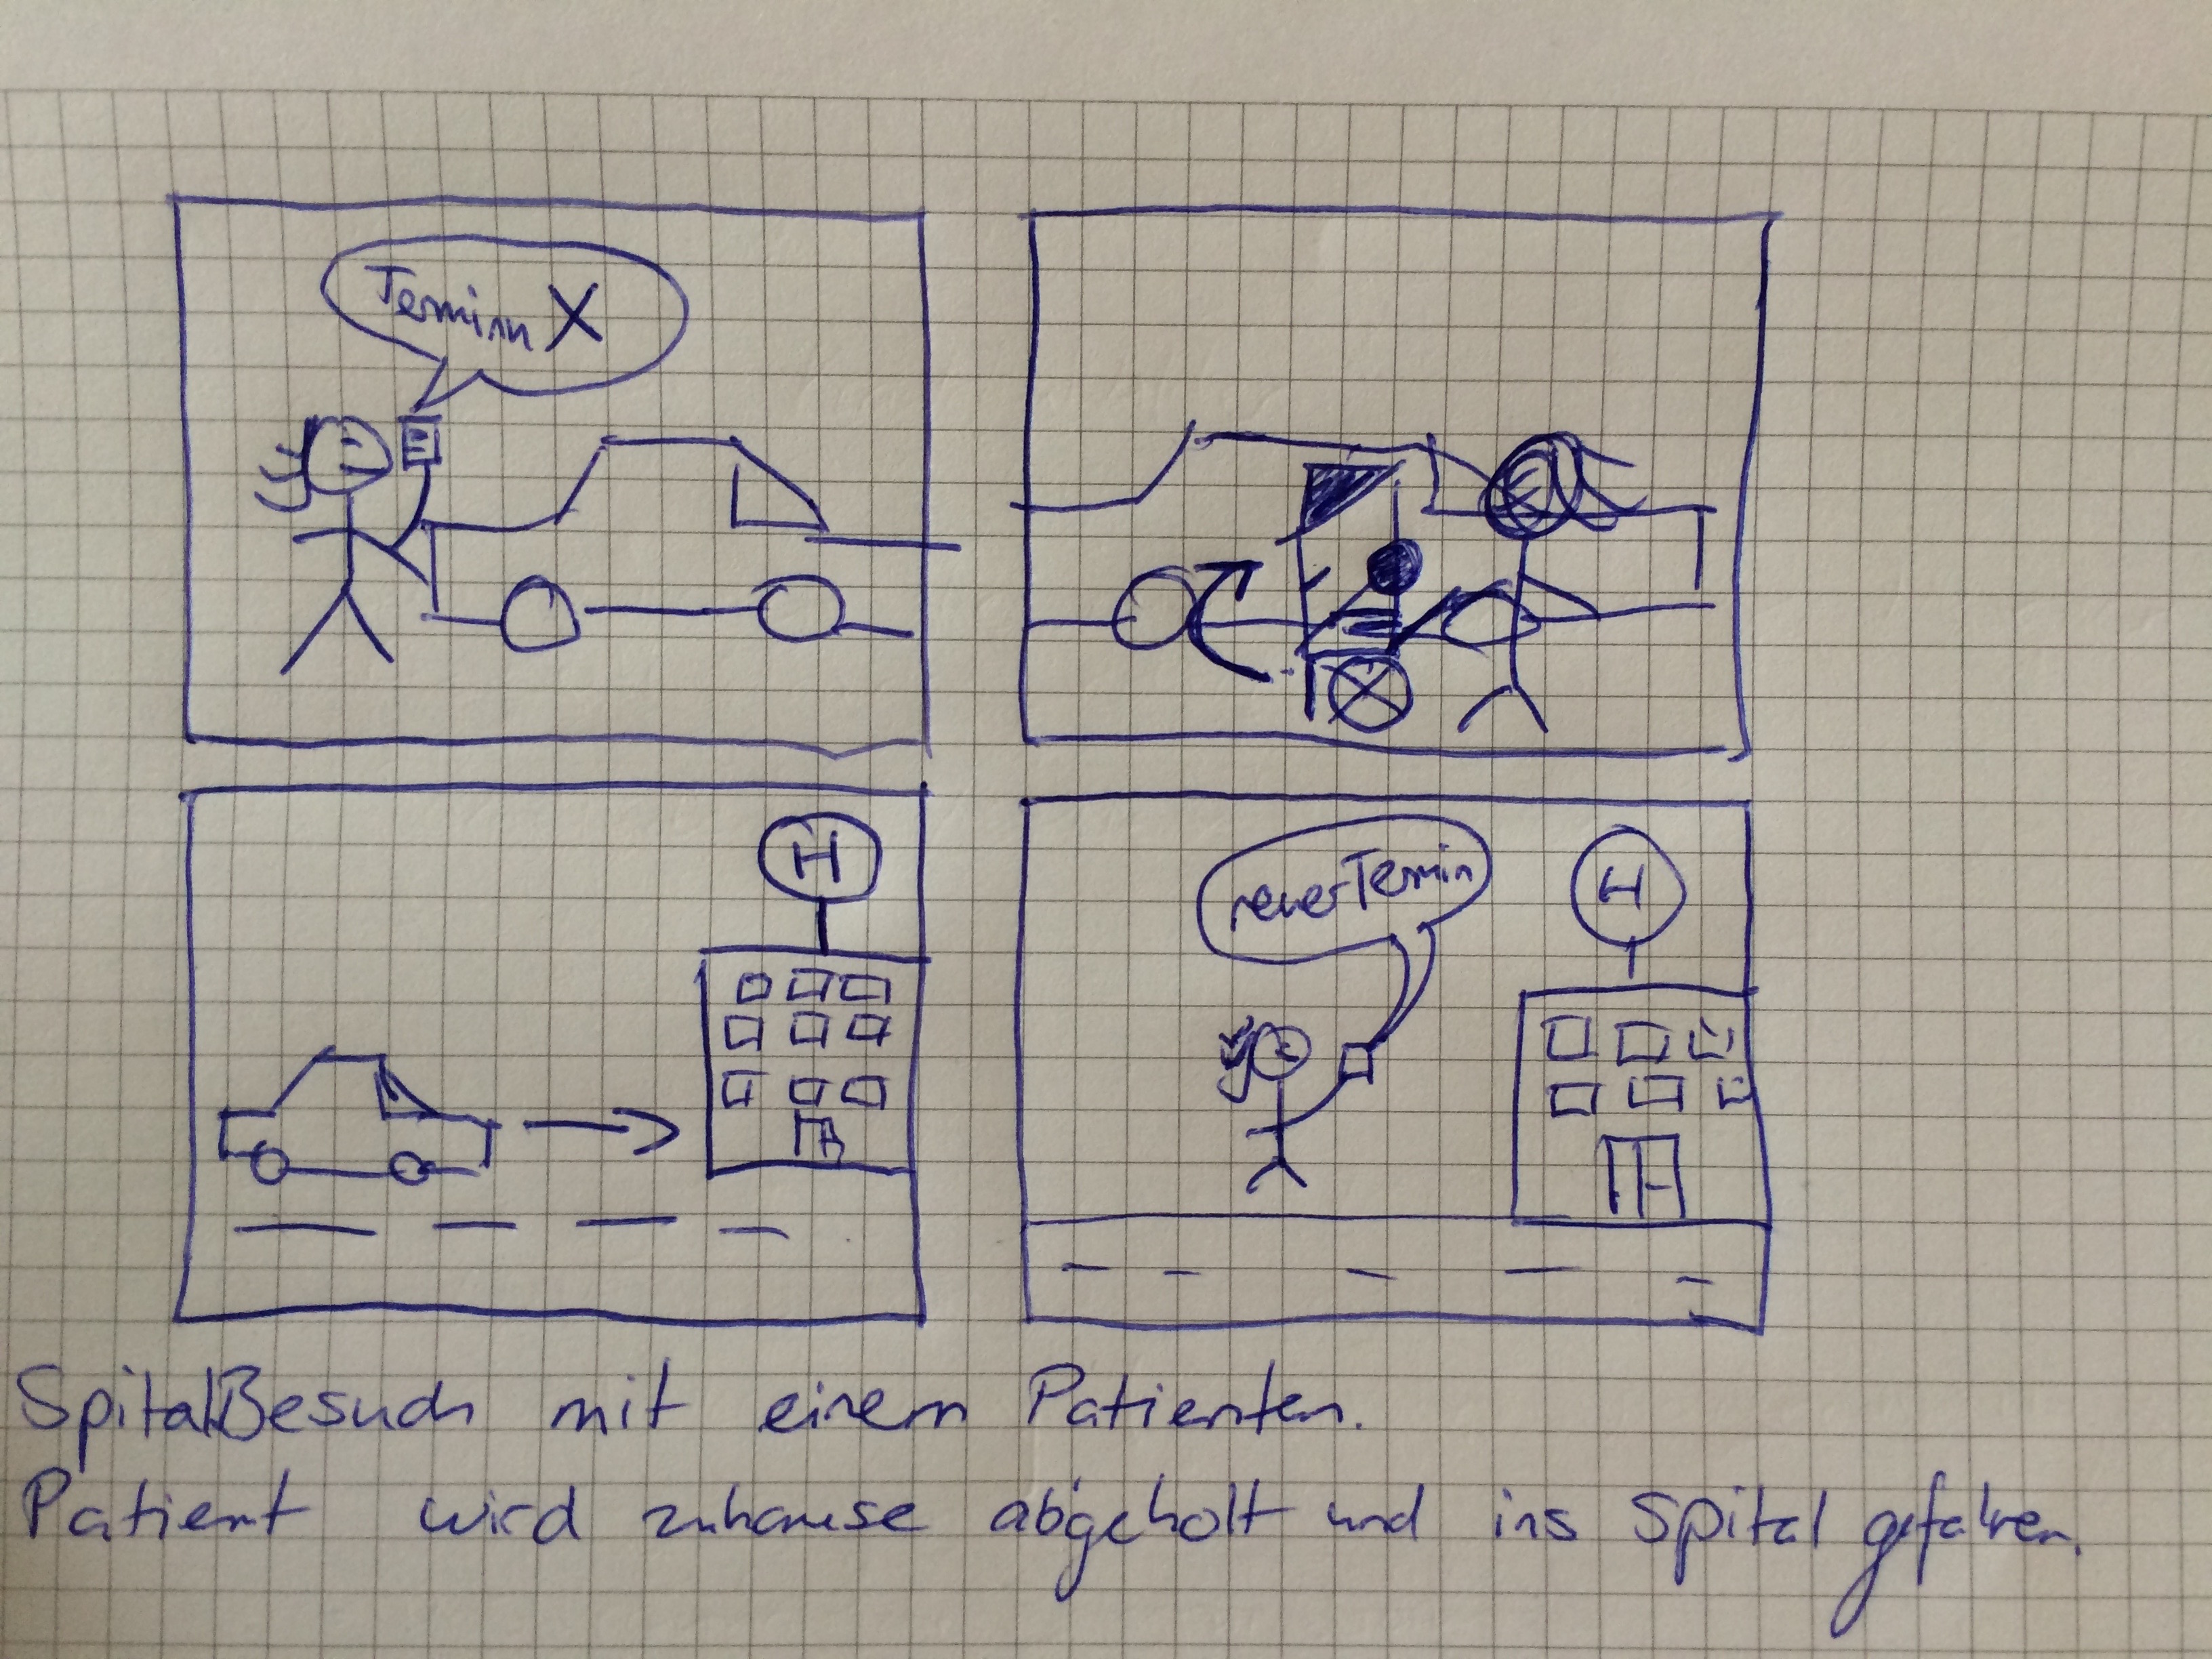 Termin X
H
neuer Termin
H
SpitalBesuch mit einem Patienten.
Patient wird zuhause abgeholt und ins Spital gefahren.